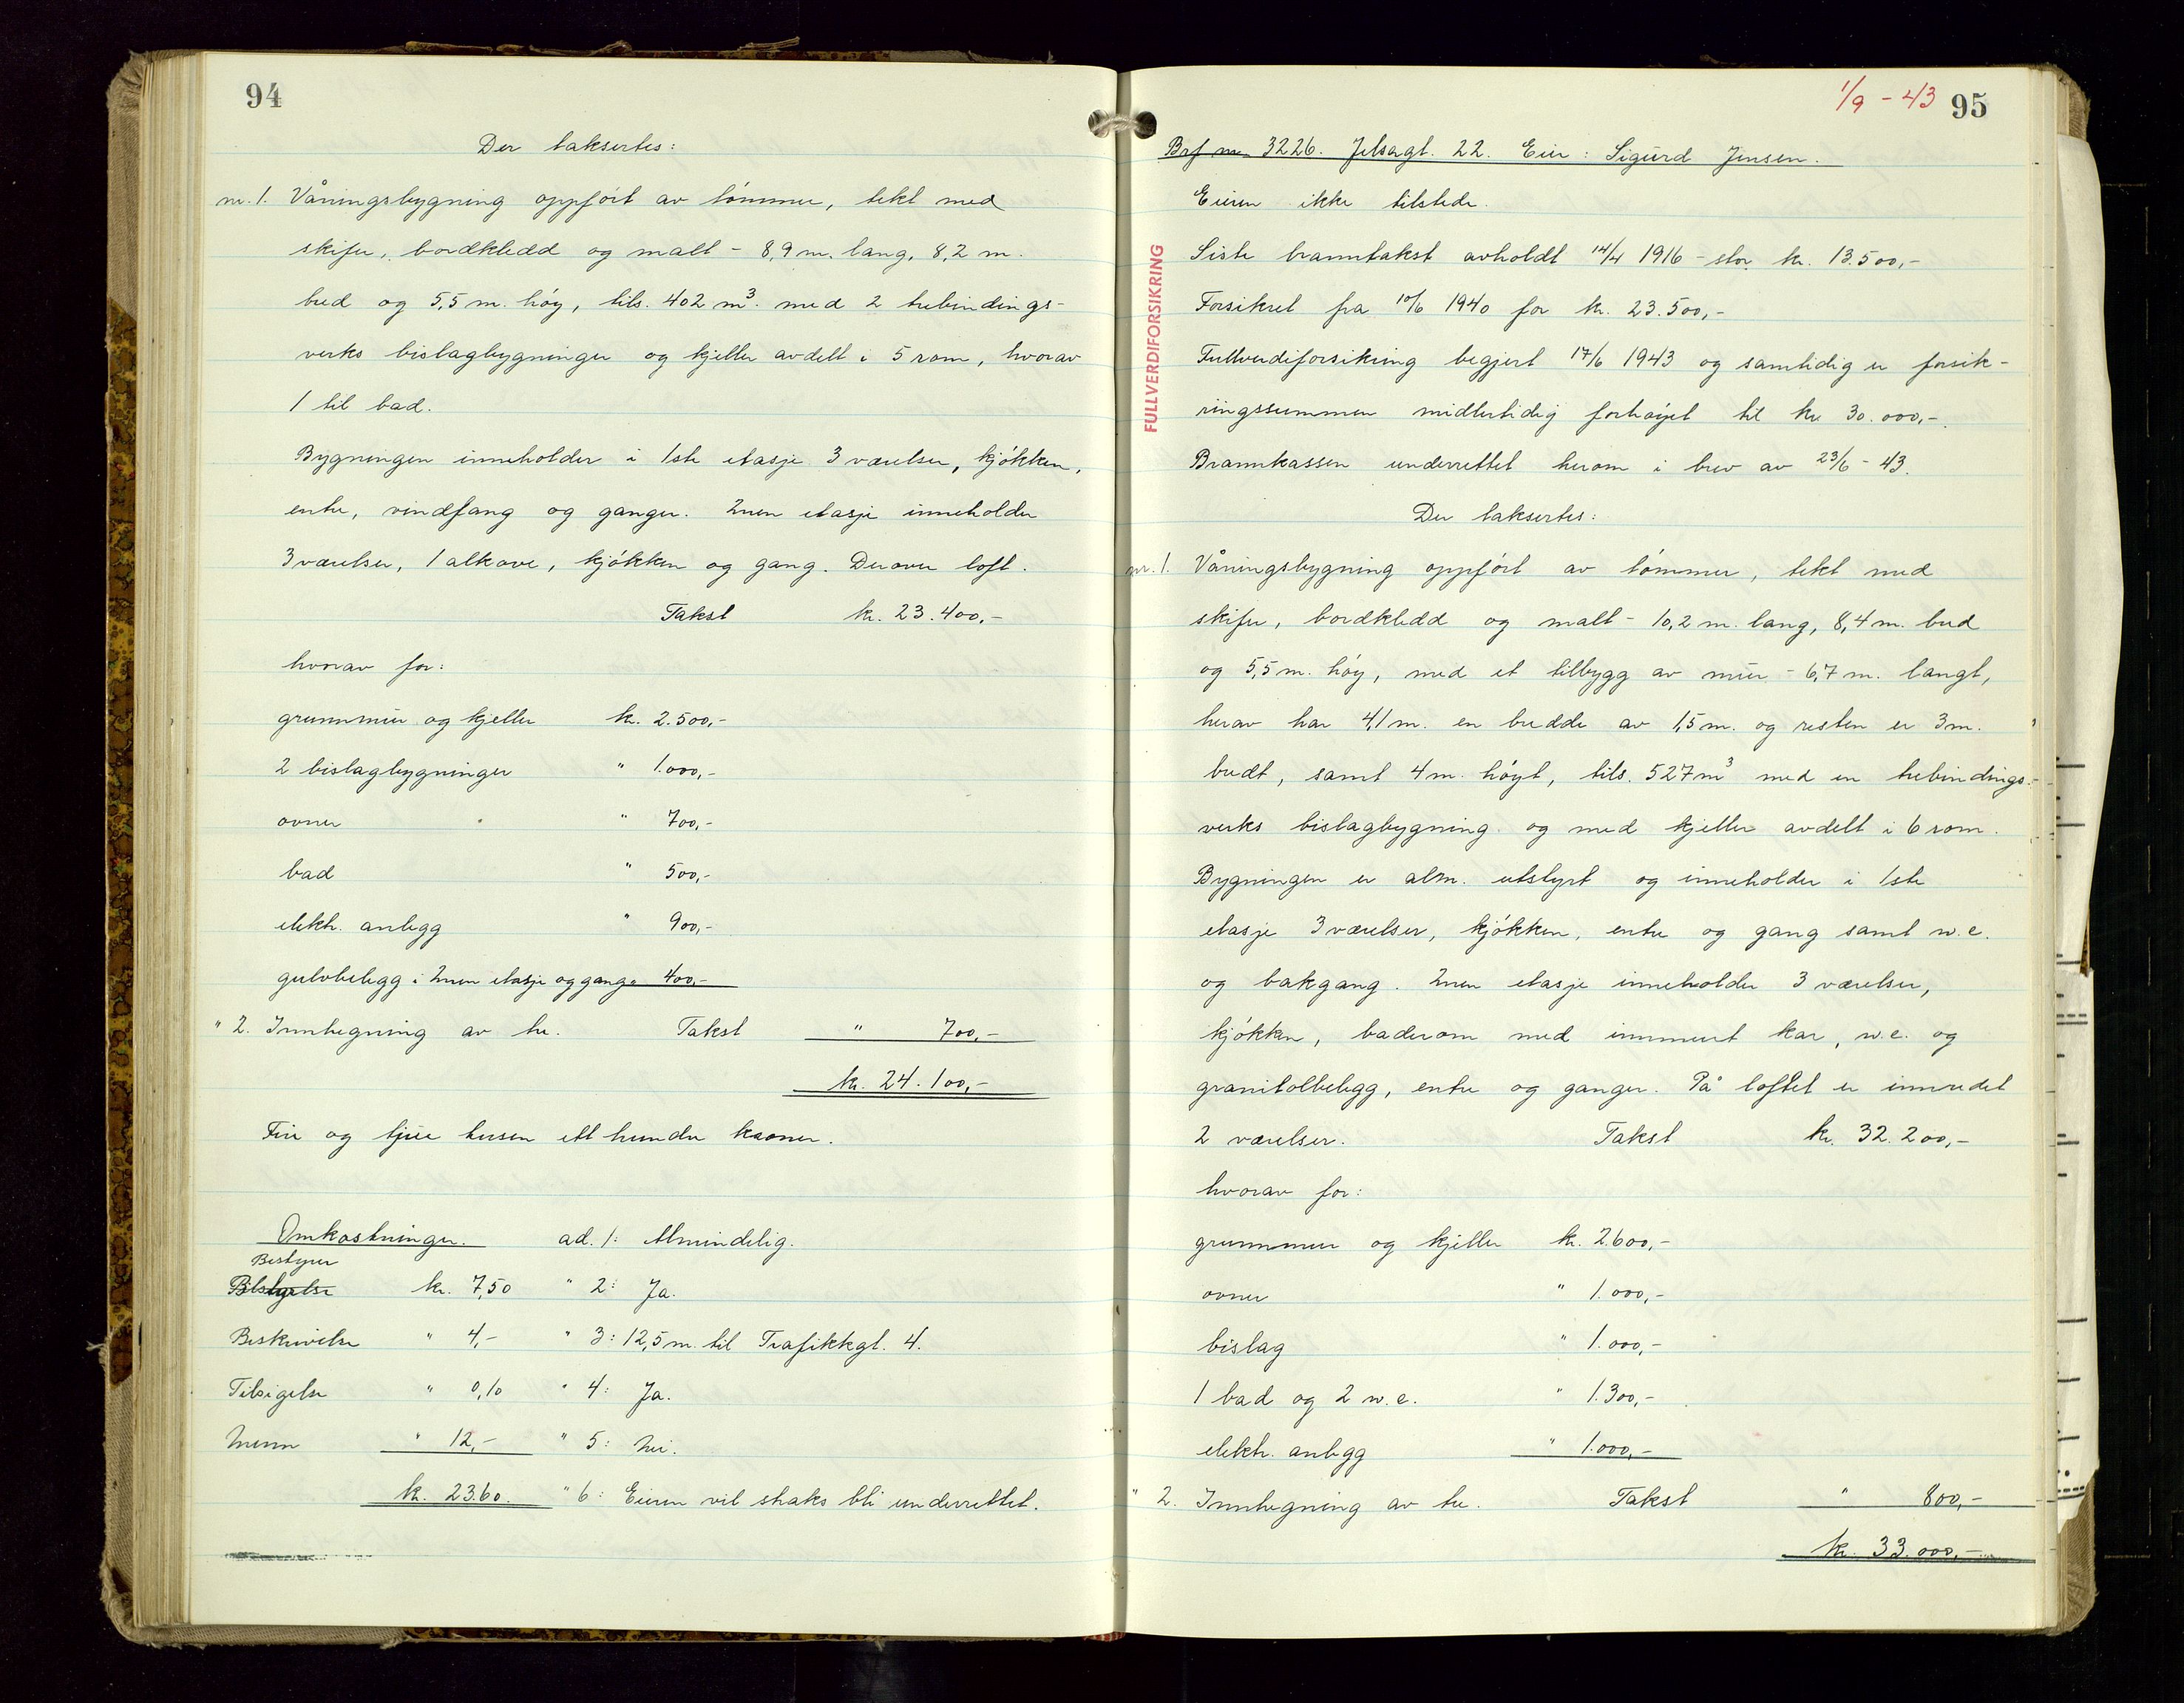 94
Der taksertes:
nr. 1. Våningsbygning oppført av tømmer, tekt med
skifer, bordkledd og malt - 8,9 m. lang, 8,2 m.
bred og 5,5 m. høy, tils. 402 m³. med 2 trebindings-
verks bislagbygninger og kjeller avdelt i 5 rom, hvorav
1 til bad.
Bygningen inneholder i 1ste etasje 3 værelser, kjøkken,
entre, vindfang og ganger. 2nen etasje inneholder
3 værelser, 1 alkove, kjøkken og gang. Derover loft.
Takst kr. 23.400,-
hvorav for:
grunnmur og kjeller kr. 2.500,-
2 bislagbygninger " 1.000,-
ovner " 700,-
bad " 500,-
elektr. anlegg " 900,-
gulvbelegg i 2nen etasje og gang " 400,-
" 2. Innhegning av tre. Takst " 700,-
kr. 24.100,-
Fire og tjue tusen ett hundre kroner.
Omkostninger. ad. 1: Almindelig.
Bestyrer
kr. 7,50 " 2: Ja.
Beskrivelse " 4,- " 3: 12,5 m. til Trafikkgt. 4.
Tilsigelse " 0,10 " 4: Ja.
Menn " 12,- " 5: Nei.
kr. 23.60. " 6: Eieren vil straks bli underrettet.
1/9 - 43 95
Brf nr. 3226. Jelsagt. 22. Eier: Sigurd Jensen.
Eieren ikke tilstede.
FULLVERDIFORSIKRING
Siste branntakst avholdt 14/4 1916 - stor kr. 13.500,-
Forsikret fra 10/6 1940 for kr. 23.500,-
Fullverdiforsikring begjert 17/6 1943 og samtidig er forsik-
ringssummen midlertidig forhøyet til kr. 30.000,-.
Brannkassen underrettet herom i brev av 23/6 - 43.
Der taksertes:
nr. 1. Våningsbygning oppført av tømmer, tekt med
skifer, bordkledd og malt - 10,2 m. lang, 8,4 m. bred
og 5,5 m. høy, med et tilbygg av mur - 6,7 m. langt,
herav har 4,1 m. en bredde av 1,5 m. og resten er 3 m.
bredt, samt 4 m. høyt, tils. 527 m³ med en trebindings-
verks bislagbygning og med kjeller avdelt i 6 rom.
Bygningen er alm. utstyrt og inneholder i 1ste
etasje 3 værelser, kjøkken, entre og gang samt w.c.
og bakgang. 2nen etasje inneholder 3 værelser,
kjøkken, baderom med innmurt kar, w.c. og
granitolbelegg, entre og ganger. På loftet er innredet
2 værelser. Takst kr. 32.200,-
hvorav for:
grunnmur og kjeller kr. 2.600,-
ovner " 1.000,-
bislag " 1.000,-
1 bad og 2 w.c. " 1.300,-
elektr. anlegg " 1.000,-
" 2. Innhegning av tre. Takst " 800,-
kr. 33.000,-